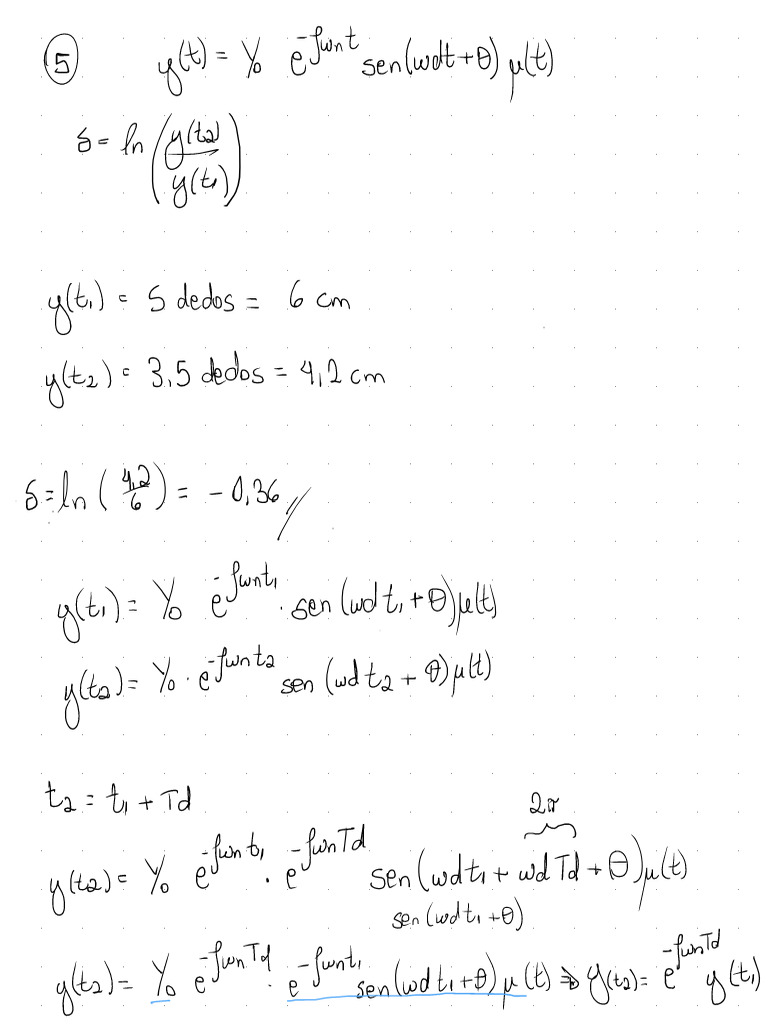 5 y(t) = Y₀ e^{-ξωnt} sen(ωdt+θ) μ(t)
δ = ln (y(t₂)/y(t₁))
y(t₁) = 5 dedos = 6 cm
y(t₂) = 3,5 dedos = 4,2 cm
δ = ln (4,2/6) = -0,36 //
y(t₁) = Y₀ e^{-ξωnt₁} . sen (ωd t₁ + θ)μ(t)
y(t₂) = Y₀ . e^{-ξωnt₂} sen (ωd t₂ + θ)μ(t)
t₂ = t₁ + Td
2π
y(t₂) = Y₀ e^{-ξωnt₁} . e^{-ξωnTd} sen(ωdt₁ + ωdTd + θ)μ(t)
sen(ωdt₁ + θ)
y(t₂) = Y₀ e^{-ξωnTd} . e^{-ξωnt₁} sen(ωdt₁+θ) μ(t) ⇒ y(t₂) = e^{-ξωnTd} y(t₁)